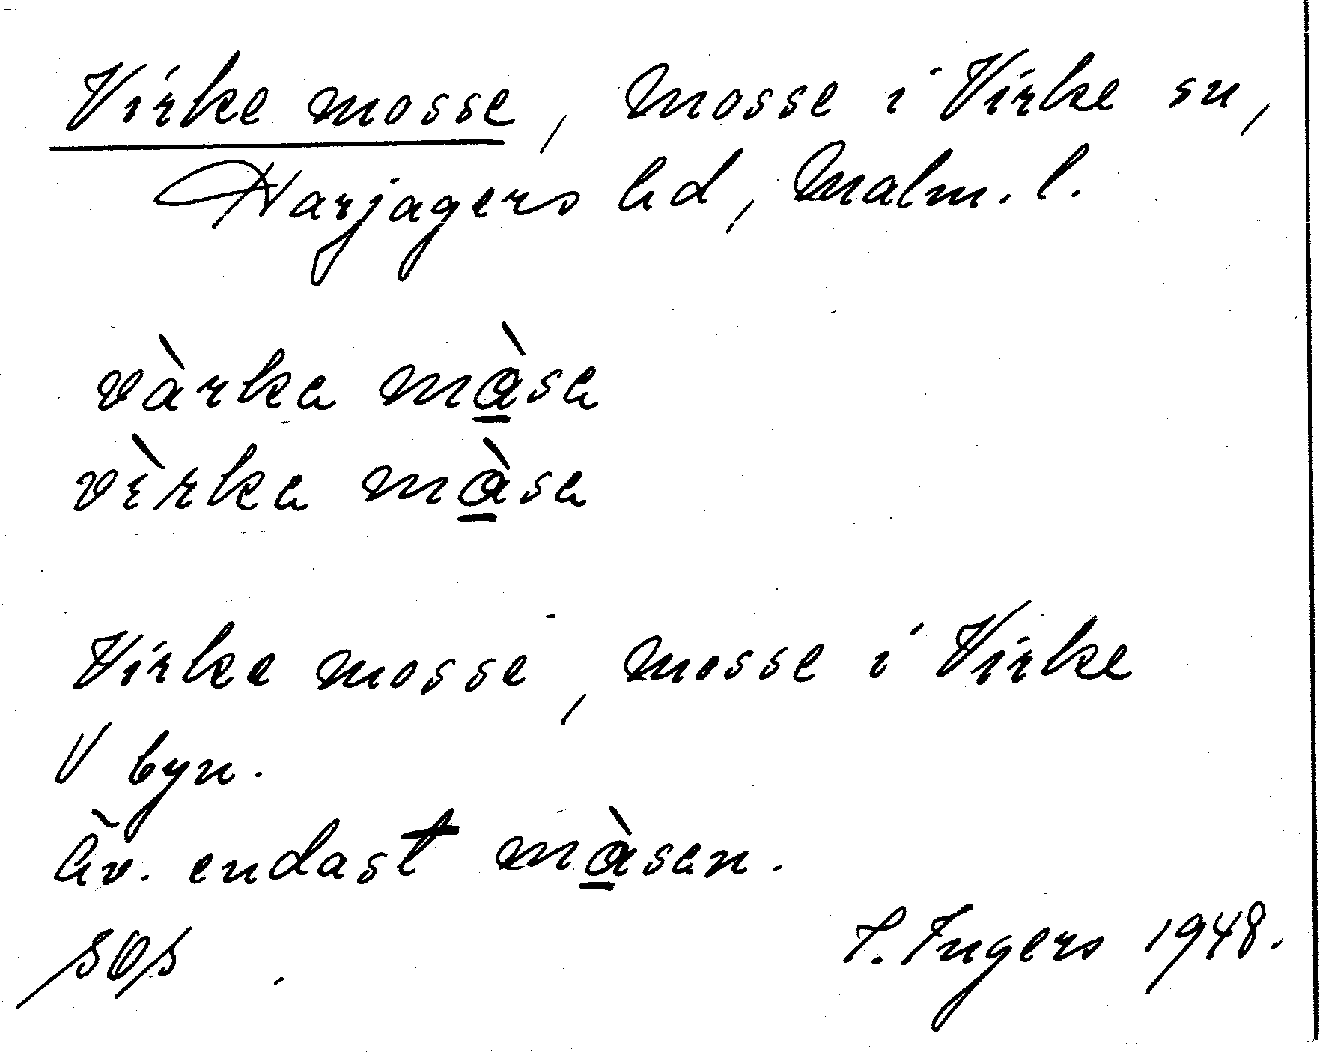 Virke mosse, Mosse i Virke sn,
Harjagers hd, Malm. l.
vàrka màsa
vìrka màsa
Virke mosse, mosse i Virke
V byn.
Äv. endast màsen.
I. Ingers 1948.